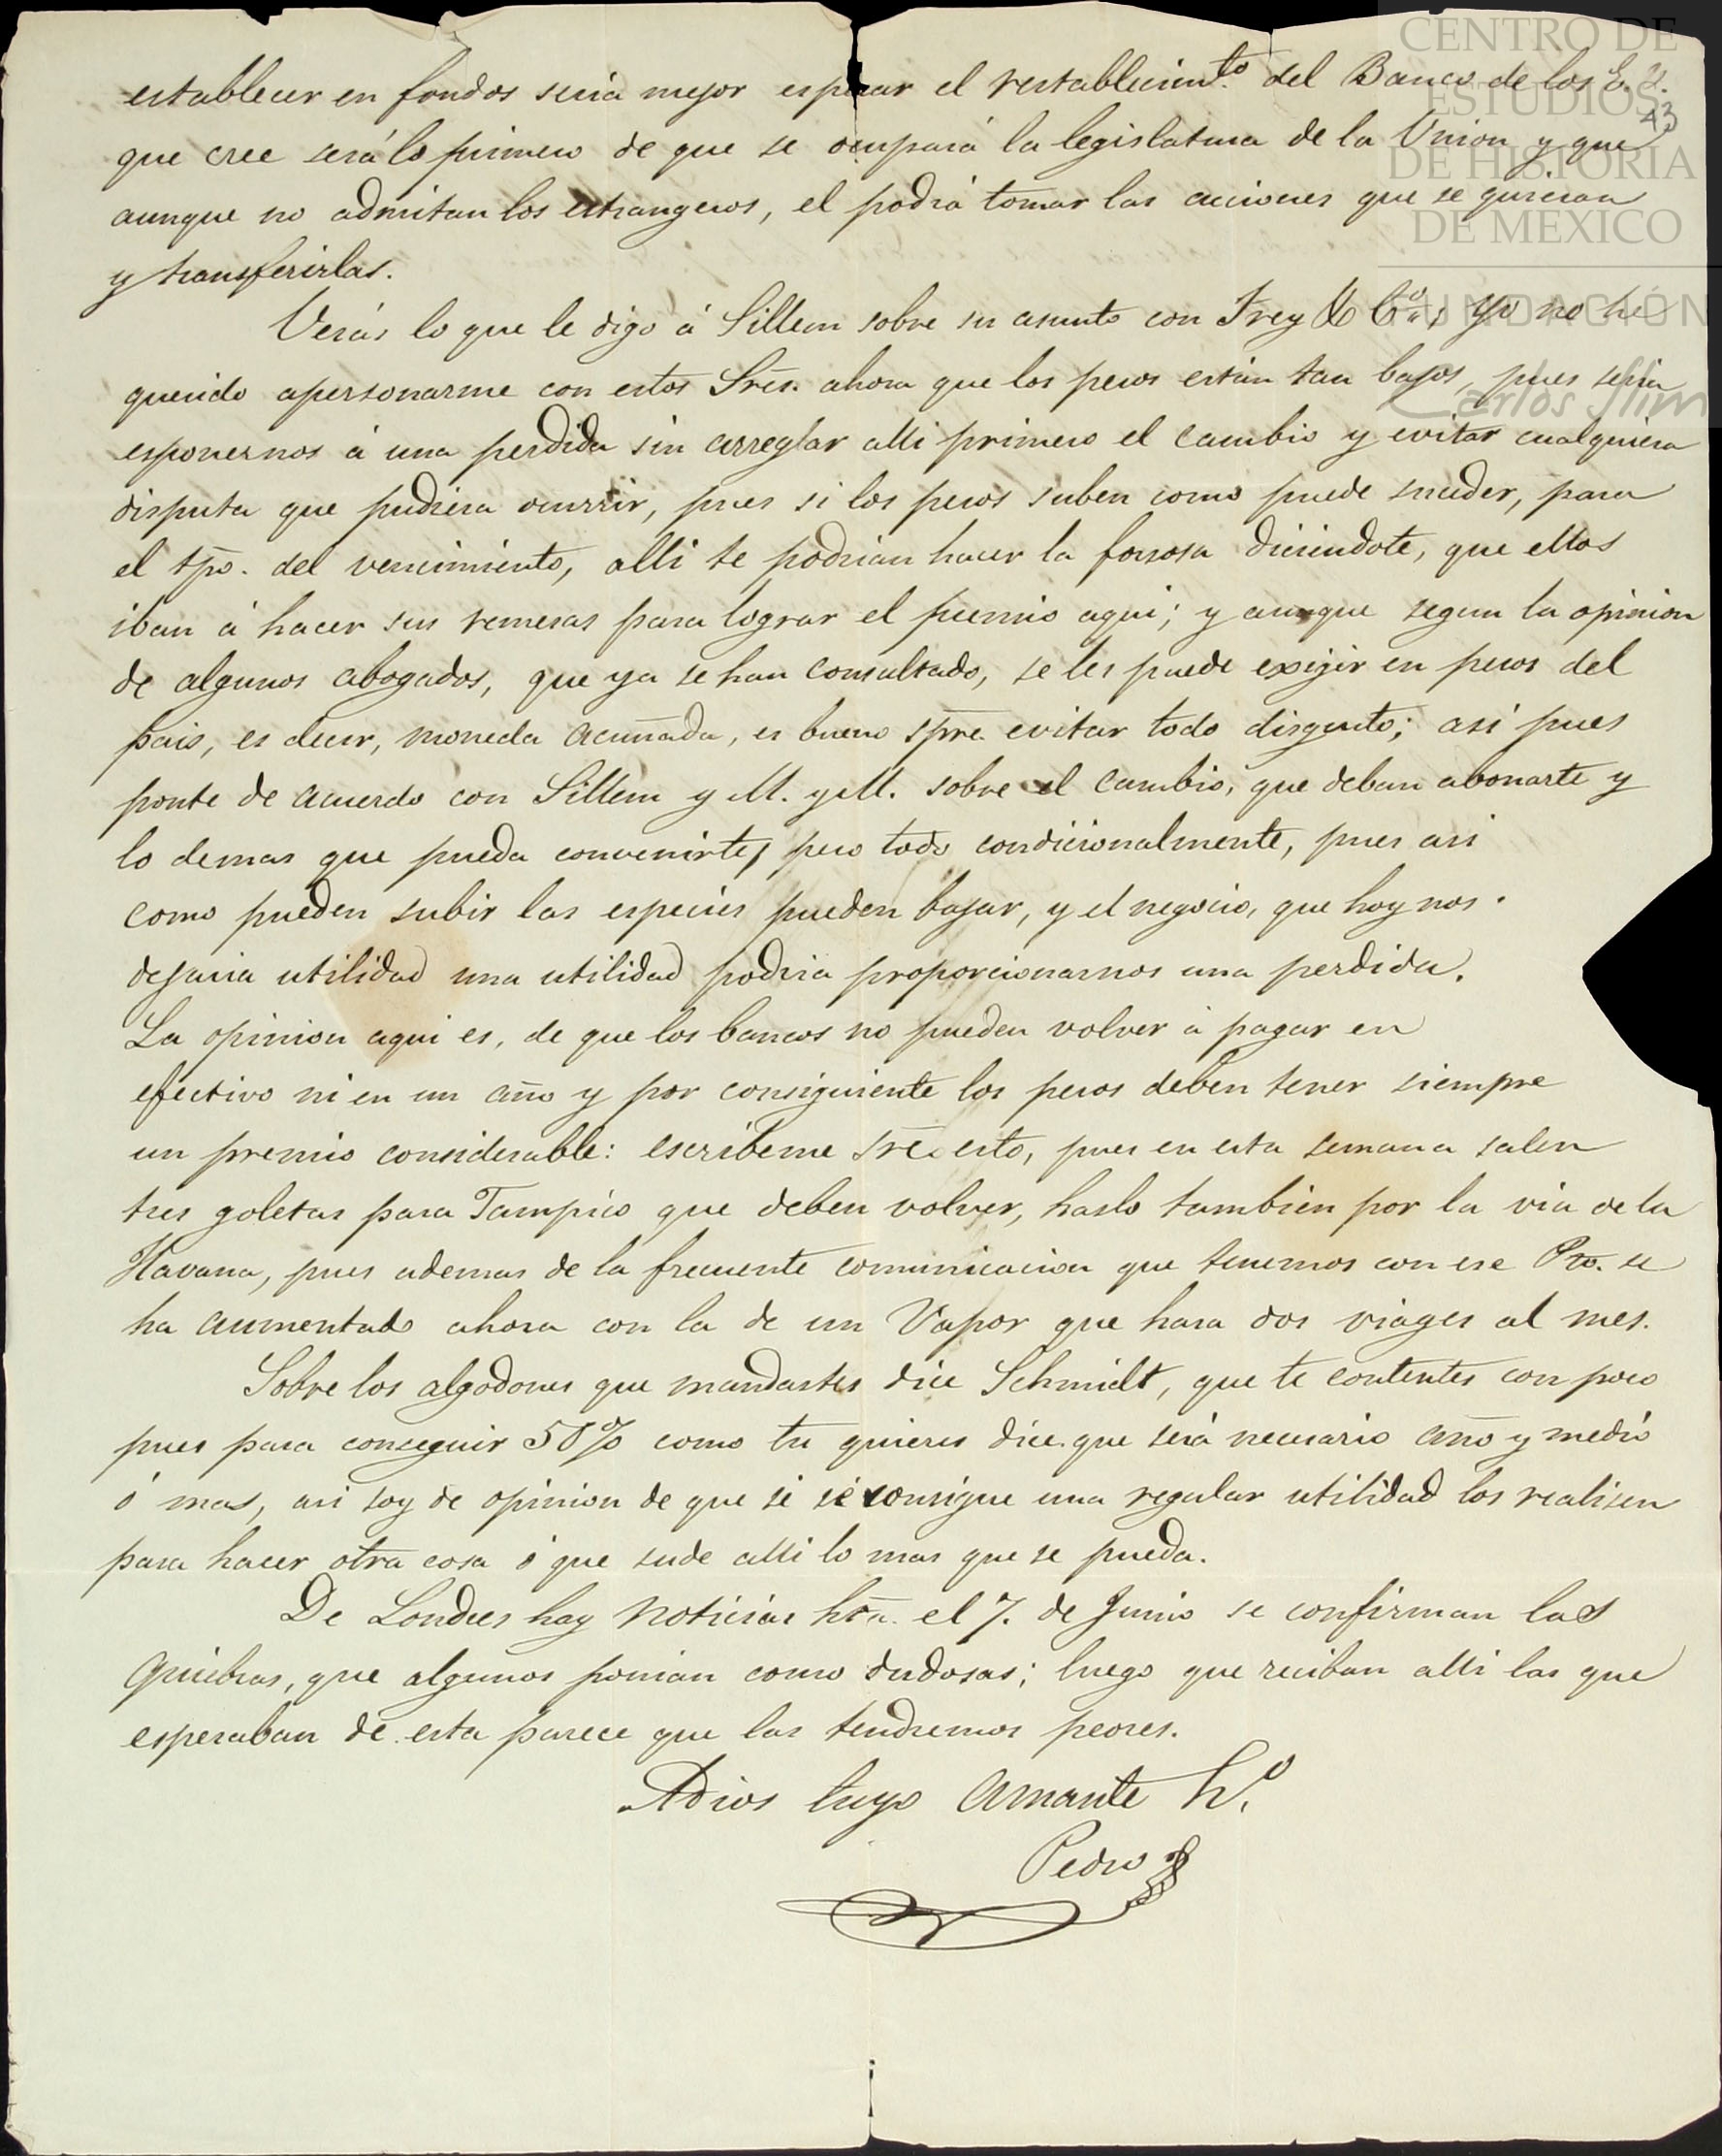 CENTRO DE
ESTUDIOS
DE HISTORIA
DE MEXICO
FUNDACIÓN
Carlos Slim
43
establecer en fondos seria mejor esperar el restablecimto. del Banco de los E. U.
que cree será lo primero de que se ocupará la legislatura de la Union y que
aunque no admitan los estrangeros, el podrá tomar las acciones que se quieran
y transferirlas.
Verás lo que le digo á Sillem sobre su asunto con Frey & Ca., yo no hé
querido apersonarme con estos Sres. ahora que los pesos están tan bajos, pues seria
esponernos á una perdida sin arreglar alli primero el cambio y evitar cualquiera
disputa que pudiera ocurrir, pues si los pesos suben como puede suceder, para
el tpo. del vencimiento, alli te podrian hacer la forsosa diciendote, que ellos
iban á hacer sus remesas para lograr el premio aqui; y aunque segun la opinion
de algunos abogados, que ya se han consultado, se les puede exijir en pesos del
pais, es decir, moneda acuñada, es bueno spre. evitar todo disgusto; asi pues
ponte de acuerdo con Sillem y M. y M. sobre el cambio, que deban abonarte y
lo demas que pueda convenirte, pero todo condicionalmente, pues asi
como pueden subir las especies pueden bajar, y el negocio, que hoy nos
dejaria utilidad una utilidad podria proporcionarnos una perdida.
La opinion aqui es, de que los bancos no pueden volver á pagar en
efectivo ni en un año y por consiguiente los pesos deben tener siempre
un premio considerable: escribeme sre esto, pues en esta semana salen
tres goletas para Tampico que deben volver, haslo tambien por la via de la
Havana, pues ademas de la frecuente comunicacion que tenemos con ese Pto. se
ha aumentado ahora con la de un Vapor que hara dos viages al mes.
Sobre los algodones que mandastes dice Schmidt, que te contentes con poco
pues para conseguir 50% como tu quieres dice que será necesario año y medio
ó mas, asi soy de opinion de que si se consigue una regular utilidad los realisen
para hacer otra cosa ó que sude alli lo mas que se pueda.
De Londres hay noticias hta. el 7. de Junio se confirman las
quiebras, que algunos ponian como dudosas; luego que reciban alli las que
esperaban de esta parece que las tendremos peores.
Adios tuyo amante ho.
Pedro